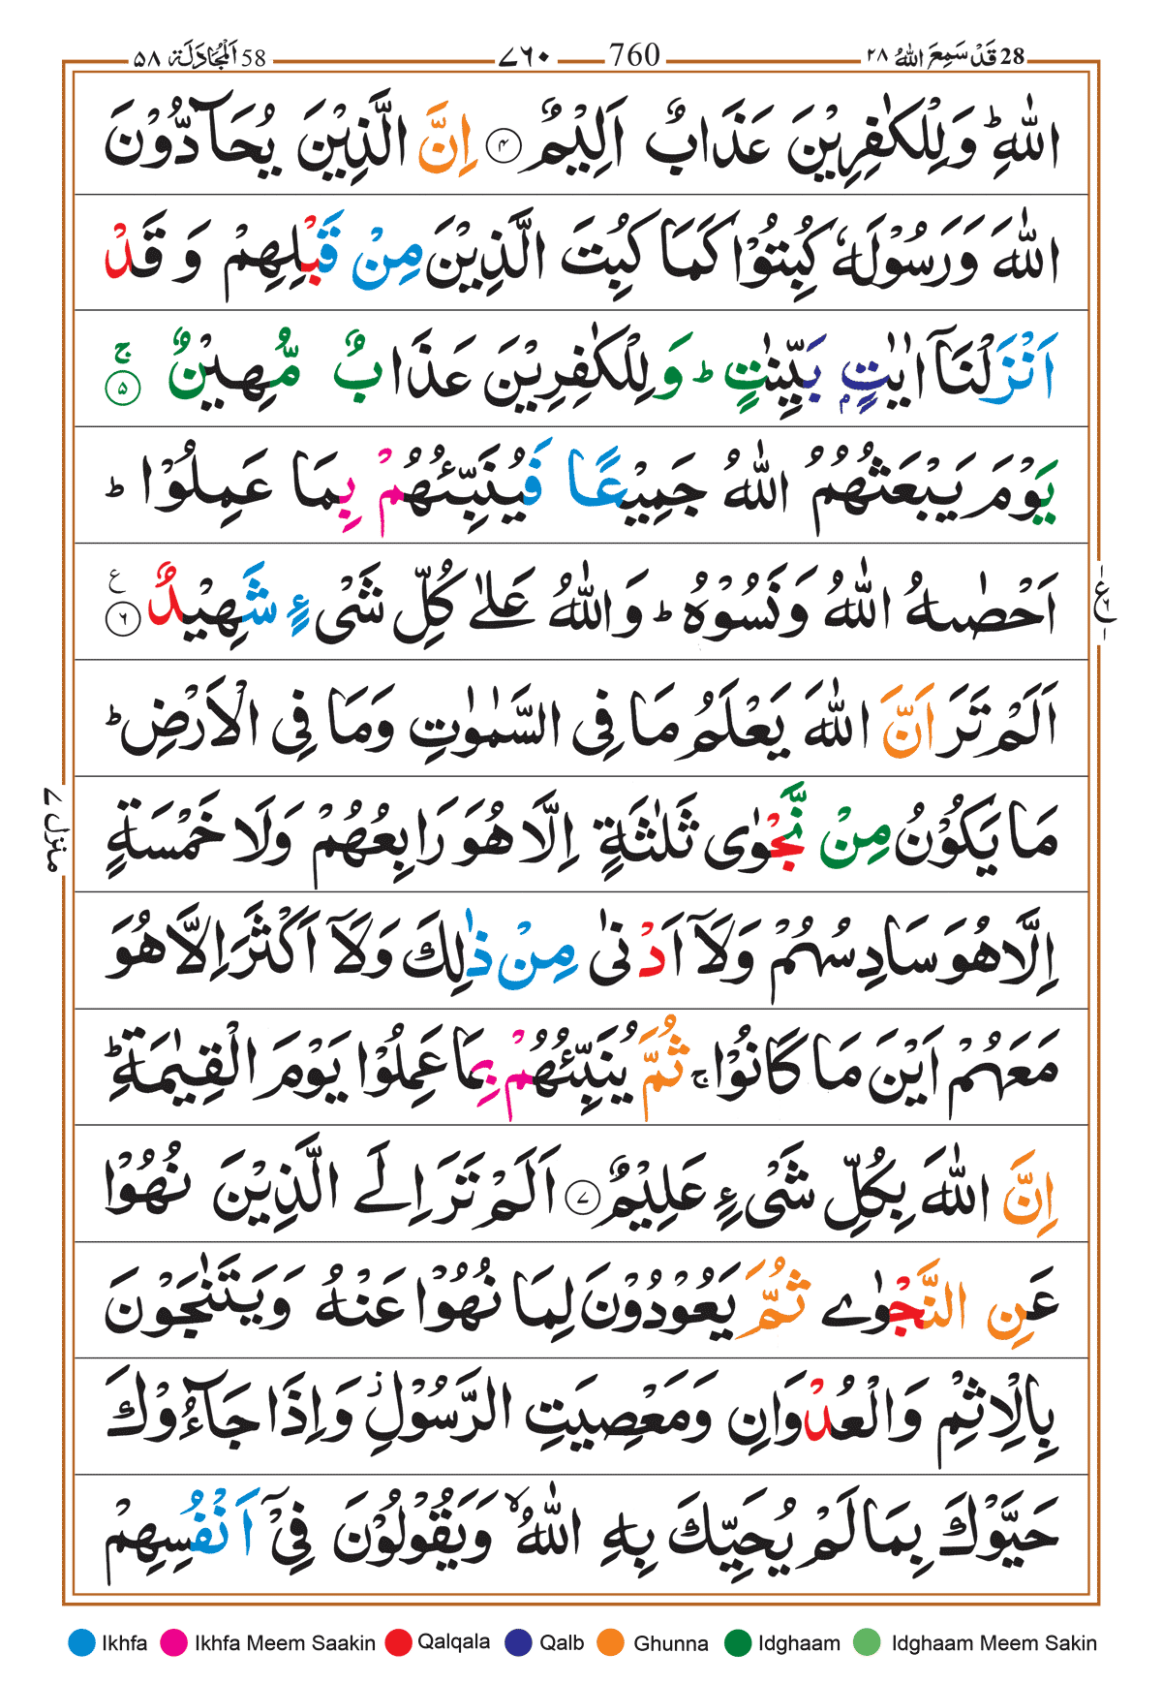 58 اَلْمُجَادَلَة ٥٨ ٧٦٠ 760 28 قَدْ سَمِعَ اللهُ ٢٨
اللّٰهِؕ وَلِلْكٰفِرِيْنَ عَذَابٌ اَلِيْمٌ ۝۴ اِنَّ الَّذِيْنَ يُحَآدُّوْنَ
اللّٰهَ وَرَسُوْلَهٗ كُبِتُوْا كَمَا كُبِتَ الَّذِيْنَ مِنْ قَبْلِهِمْ وَ قَدْ
اَنْزَلْنَاۤ اٰيٰتٍۭ بَيِّنٰتٍ ؕ وَلِلْكٰفِرِيْنَ عَذَابٌ مُّهِيْنٌ ۚ ۝۵
يَوْمَ يَبْعَثُهُمُ اللّٰهُ جَمِيْعًا فَيُنَبِّئُهُمْ بِمَا عَمِلُوْا ؕ
اَحْصٰىهُ اللّٰهُ وَنَسُوْهُ ؕ وَاللّٰهُ عَلٰى كُلِّ شَىْءٍ شَهِيْدٌ ع ۝۶
اَلَمْ تَرَ اَنَّ اللّٰهَ يَعْلَمُ مَا فِى السَّمٰوٰتِ وَمَا فِى الْاَرْضِ ؕ
مَا يَكُوْنُ مِنْ نَّجْوٰى ثَلٰثَةٍ اِلَّا هُوَ رَابِعُهُمْ وَلَا خَمْسَةٍ
اِلَّا هُوَ سَادِسُهُمْ وَلَاۤ اَدْنٰى مِنْ ذٰلِكَ وَلَاۤ اَكْثَرَ اِلَّا هُوَ
مَعَهُمْ اَيْنَ مَا كَانُوْا ۚ ثُمَّ يُنَبِّئُهُمْ بِمَا عَمِلُوْا يَوْمَ الْقِيٰمَةِ ؕ
اِنَّ اللّٰهَ بِكُلِّ شَىْءٍ عَلِيْمٌ ۝۷ اَلَمْ تَرَ اِلَى الَّذِيْنَ نُهُوْا
عَنِ النَّجْوٰى ثُمَّ يَعُوْدُوْنَ لِمَا نُهُوْا عَنْهُ وَيَتَنٰجَوْنَ
بِالْاِثْمِ وَالْعُدْوَانِ وَمَعْصِيَتِ الرَّسُوْلِ ؗ وَاِذَا جَآءُوْكَ
حَيَّوْكَ بِمَا لَمْ يُحَيِّكَ بِهِ اللّٰهُ ۙ وَيَقُوْلُوْنَ فِىْۤ اَنْفُسِهِمْ
منزل ٧
ع
Ikhfa Ikhfa Meem Saakin Qalqala Qalb Ghunna Idghaam Idghaam Meem Sakin